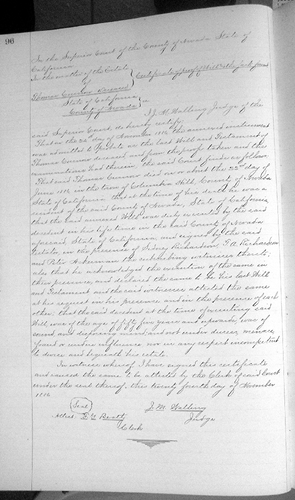 96
In the Superior Court of the County of Nevada State of
California.
In the matter of the Estate
of
Thomas Cummins Deceased
State of California
County of Nevada
Certificate of proof of Will & the facts found
ss.
I J. M. Walling Judge of the
said Superior Court, do hereby certify:
That on the day of November 1886, the annexed instrument
was admitted to probate as the last Will and Testament of
Thomas Cummins deceased, and from the proofs taken and the
examination had therein, the said Court finds as follows:
That said Thomas Cummins died on or about the day of
June 1886, in Columbia Hill, County of Nevada
State of California that at the time of his death he was a
resident of the said County of Nevada State of California,
that the said annexed Will was duly executed by the said
deceased in his life time in the said County of Nevada
aforesaid State of California, and signed by the said
Testator, in the presence of Sidney Richardson, S. A. Richardson
and Peter the subscribing witnesses thereto,
also that he acknowledged the execution of the same in
their presence, and declared the same to be his last Will
and Testament and the said witnesses attested the same
at his request in his presence, and in the presence of each
other, that the said deceased at the time of executing said
Will, was of the age of fifty five years and upwards, was of
sound and disposing mind, and not under duress, menace,
fraud or undue influence, nor in any respect incompetent
to devise and bequeath his estate.
In witness whereof I have signed this certificate
and caused the same to be attested by the Clerk of said Court
under the seal thereof, this twenty fourth day of November
1886.
Seal
J. M. Walling
Judge
Attest
Clerk